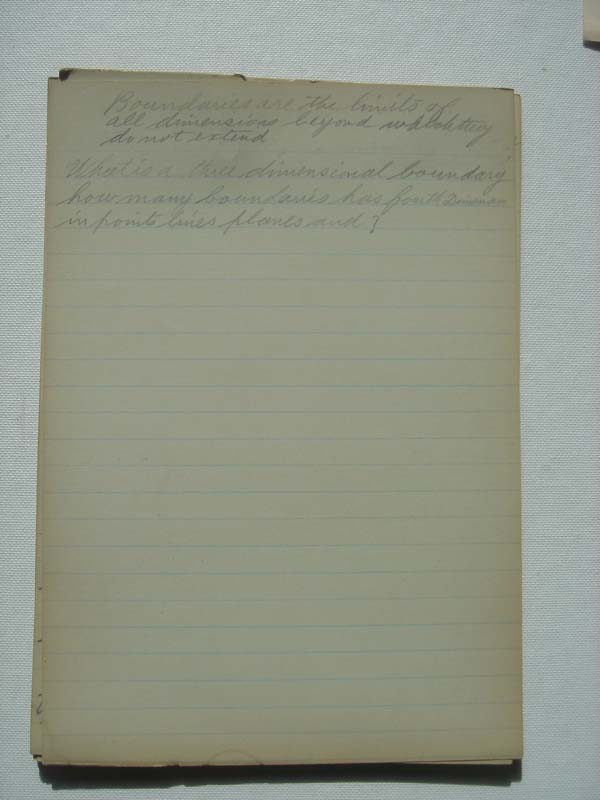 Boundaries are the limits of
all dimensions beyond which they
do not extend
What is a three dimensional boundary
how many boundaries has fourth Dimension
in points lines planes and ?